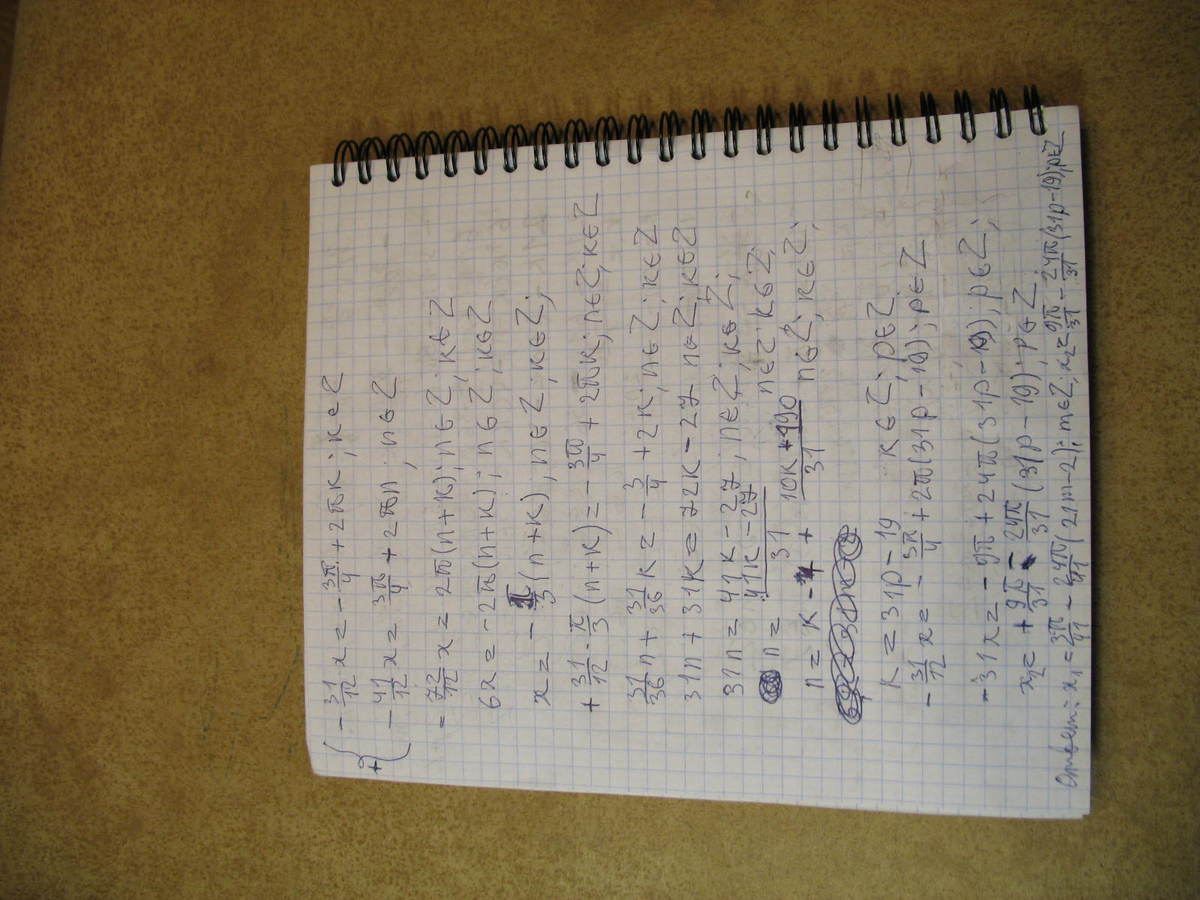 + { -31/12 x = -3π/4 + 2πk; k∈Z
-41/12 x = 3π/4 + 2πn; n∈Z
= 72/12 x = 2π(n+k); n∈Z; k∈Z
6x = -2π(n+k); n∈Z; k∈Z
x = -π/3 (n+k); n∈Z; k∈Z;
+ 31/12 · π/3 (n+k) = -3π/4 + 2πk; n∈Z; k∈Z
31/36 n + 31/36 k = -3/4 + 2k; n∈Z; k∈Z
31n + 31k = 72k - 27 n∈Z; k∈Z
31n = 41k - 27; n∈Z; k∈Z;
n = 41k - 27/31; n∈Z; k∈Z;
n = k - + 10k+190/31 n∈Z; k∈Z;
k = 31p - 19 k∈Z; p∈Z
-31/12 x = -3π/4 + 2π(31p-19); p∈Z
-31x = -9π + 24π(31p-19); p∈Z;
x₂ = + 9π/31 - 24π/31 (31p-19); p∈Z;
Ответ: x₁ = 3π/41 - 24π/41 (21m-2); m∈Z, x₂ = 9π/31 - 24π/31 (31p-19); p∈Z